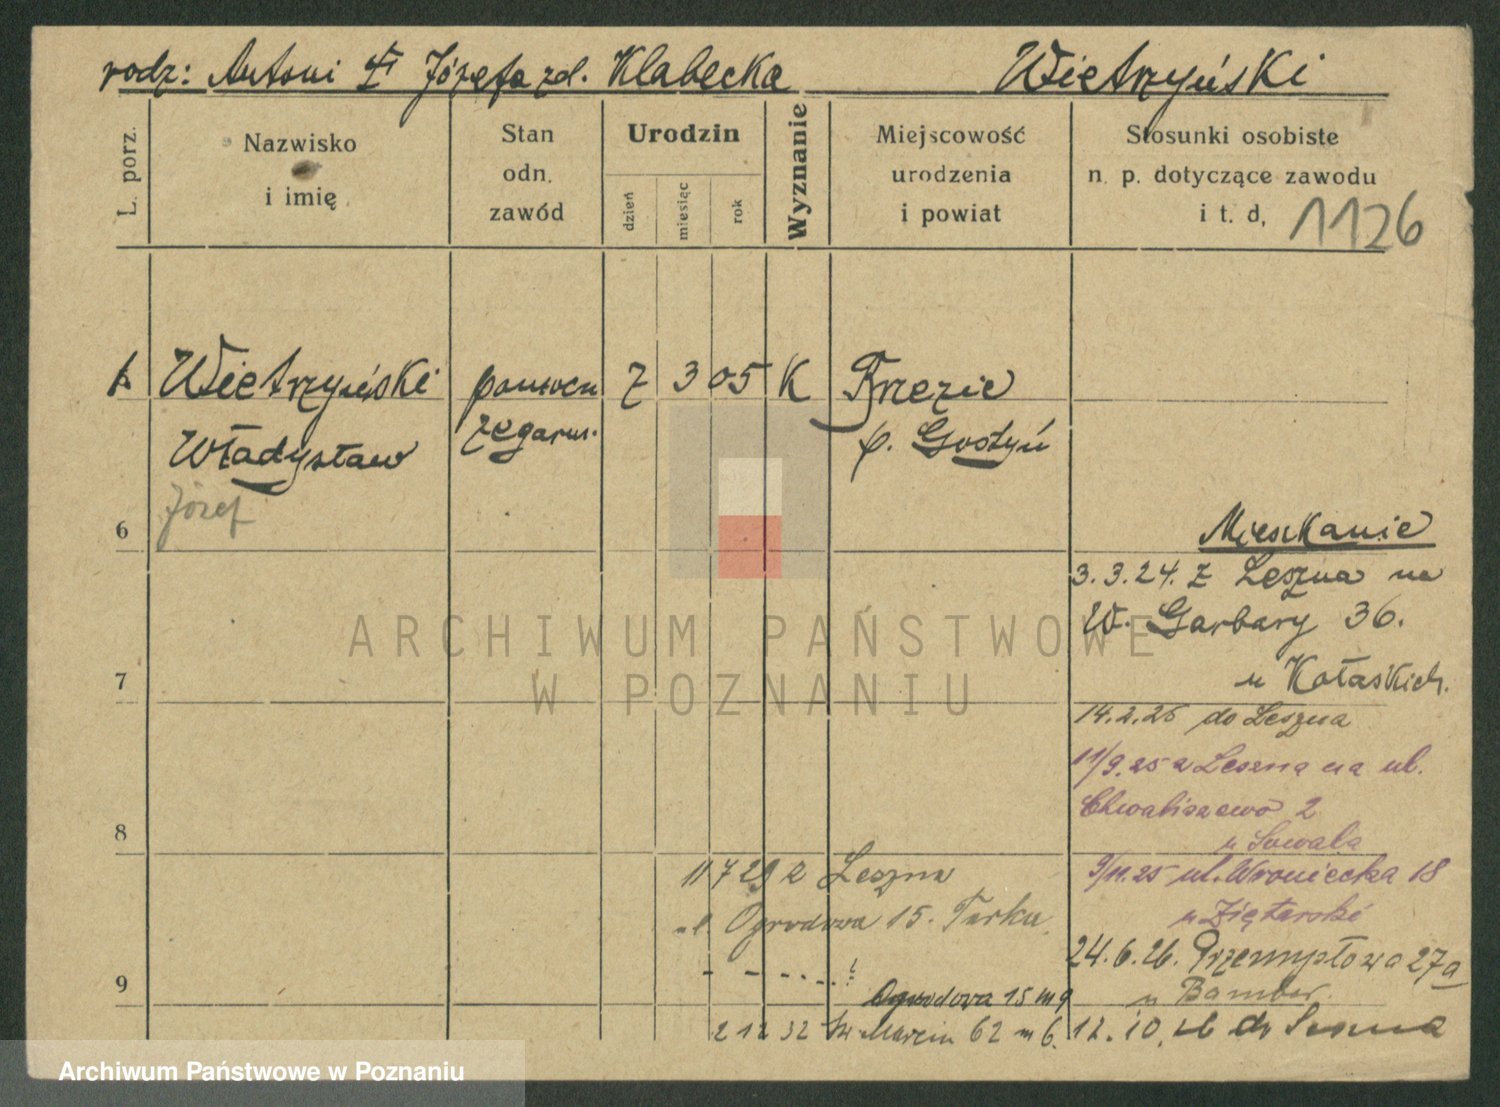 rodz: Antoni i Józefa zd. Klabecka Wietrzyński
L. porz.
Nazwisko
i imię
Stan
odn.
zawód
Urodzin
dzień
miesiąc
rok
Wyznanie
Miejscowość
urodzenia
i powiat
Stosunki osobiste
n. p. dotyczące zawodu
i t. d.
1126
Wietrzyński pomocn 7 3 05 K Brzezie
Władysław zegarm. p. Gostyń
Józef
6
Mieszkanie
3.3.24. z Leszna na
W. Garbary 36.
u Kołaskich.
7
14.2.25 do Leszna
11/9.25 z Leszna na ul.
Chwaliszewo 2
u Suwała
8
9/11.25 ul. Wroniecka 18
u Ziętarski
11 7 29 z Leszna
ul Ogrodowa 15. Turku
24.6.26. Przemysłowa 27a
u Bamber
9
Ogrodowa 15 m 9
2 12 32 Św Marcin 62 m 6.
12.10.26 do Leszna
ARCHIWUM PAŃSTWOWE
W POZNANIU
Archiwum Państwowe w Poznaniu